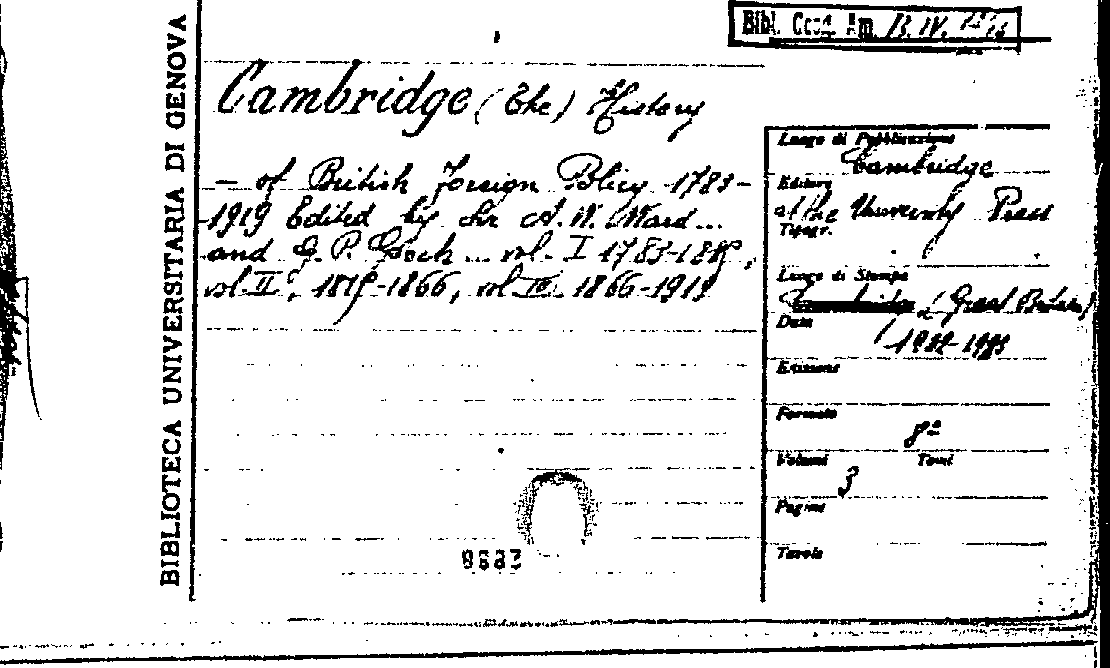 BIBLIOTECA UNIVERSITARIA DI GENOVA
Bibl. Coll. Am. B. IV.
Cambridge (The) History
- of British Foreign Policy 1783-
1919 Edited by Sir A. W. Ward...
and G. P. Gooch... vol. I 1783-1815,
vol II°, 1815-1866, vol III. 1866-1919
Luogo di Pubblicazione
Cambridge
Editore
at the University Press
Tipogr.
Luogo di Stampa
(Great Britain)
Data
1922-1923
Edizione
Formato
8°
Volumi Tomi
3
Pagine
Tavole